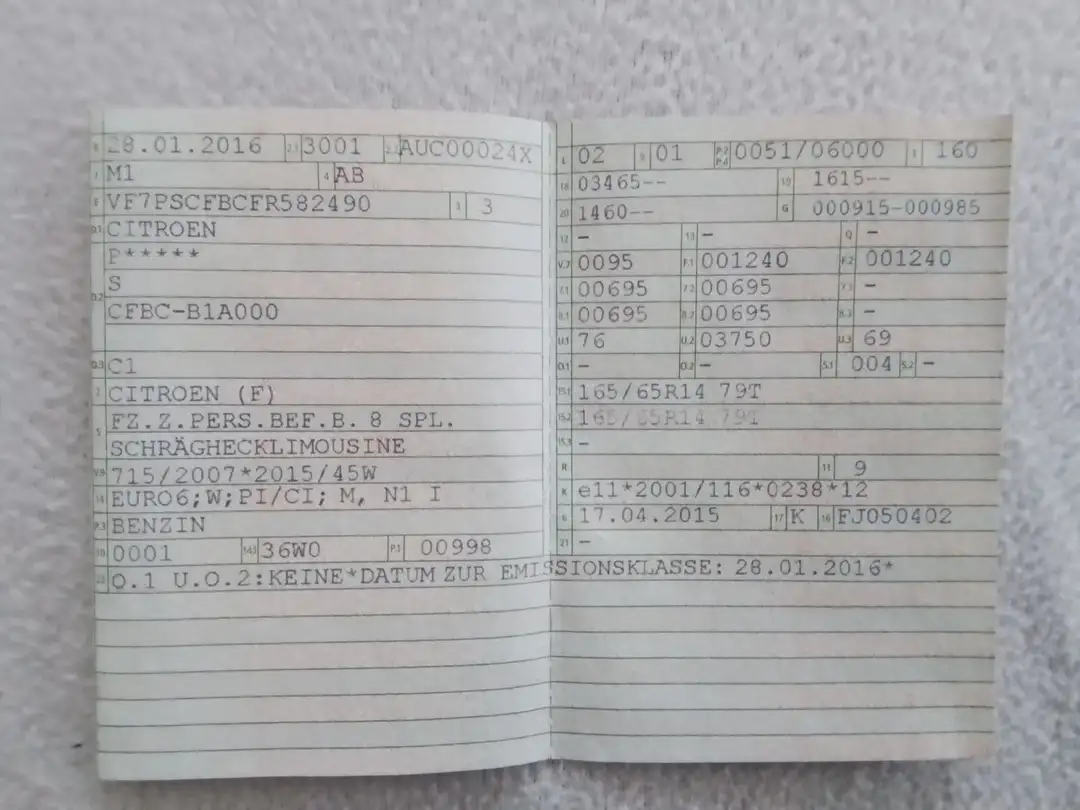 B 28.01.2016 2.1 3001 2.2 AUC00024X
J M1 4 AB
E VF7PSCFBCFR582490 3 3
D.1 CITROEN
P*****
S
D.2
CFBC-B1A000
D.3 C1
2 CITROEN (F)
FZ.Z.PERS.BEF.B. 8 SPL.
5
SCHRÄGHECKLIMOUSINE
V.9 715/2007*2015/45W
14 EURO6;W;PI/CI; M, N1 I
P.3 BENZIN
10 0001 14.1 36W0 P.1 00998
22 O.1 U.O.2:KEINE*DATUM ZUR EMISSIONSKLASSE: 28.01.2016*
L 02 9 01 P.2 P.4 0051/06000 T 160
18 03465-- 19 1615--
20 1460-- G 000915-000985
12 - 13 - Q -
V.7 0095 F.1 001240 F.2 001240
7.1 00695 7.2 00695 7.3 -
8.1 00695 8.2 00695 8.3 -
U.1 76 U.2 03750 U.3 69
O.1 - O.2 - S.1 004 S.2 -
15.1 165/65R14 79T
15.2 165/65R14 79T
15.3 -
R 11 9
K e11*2001/116*0238*12
6 17.04.2015 17 K 16 FJ050402
21 -